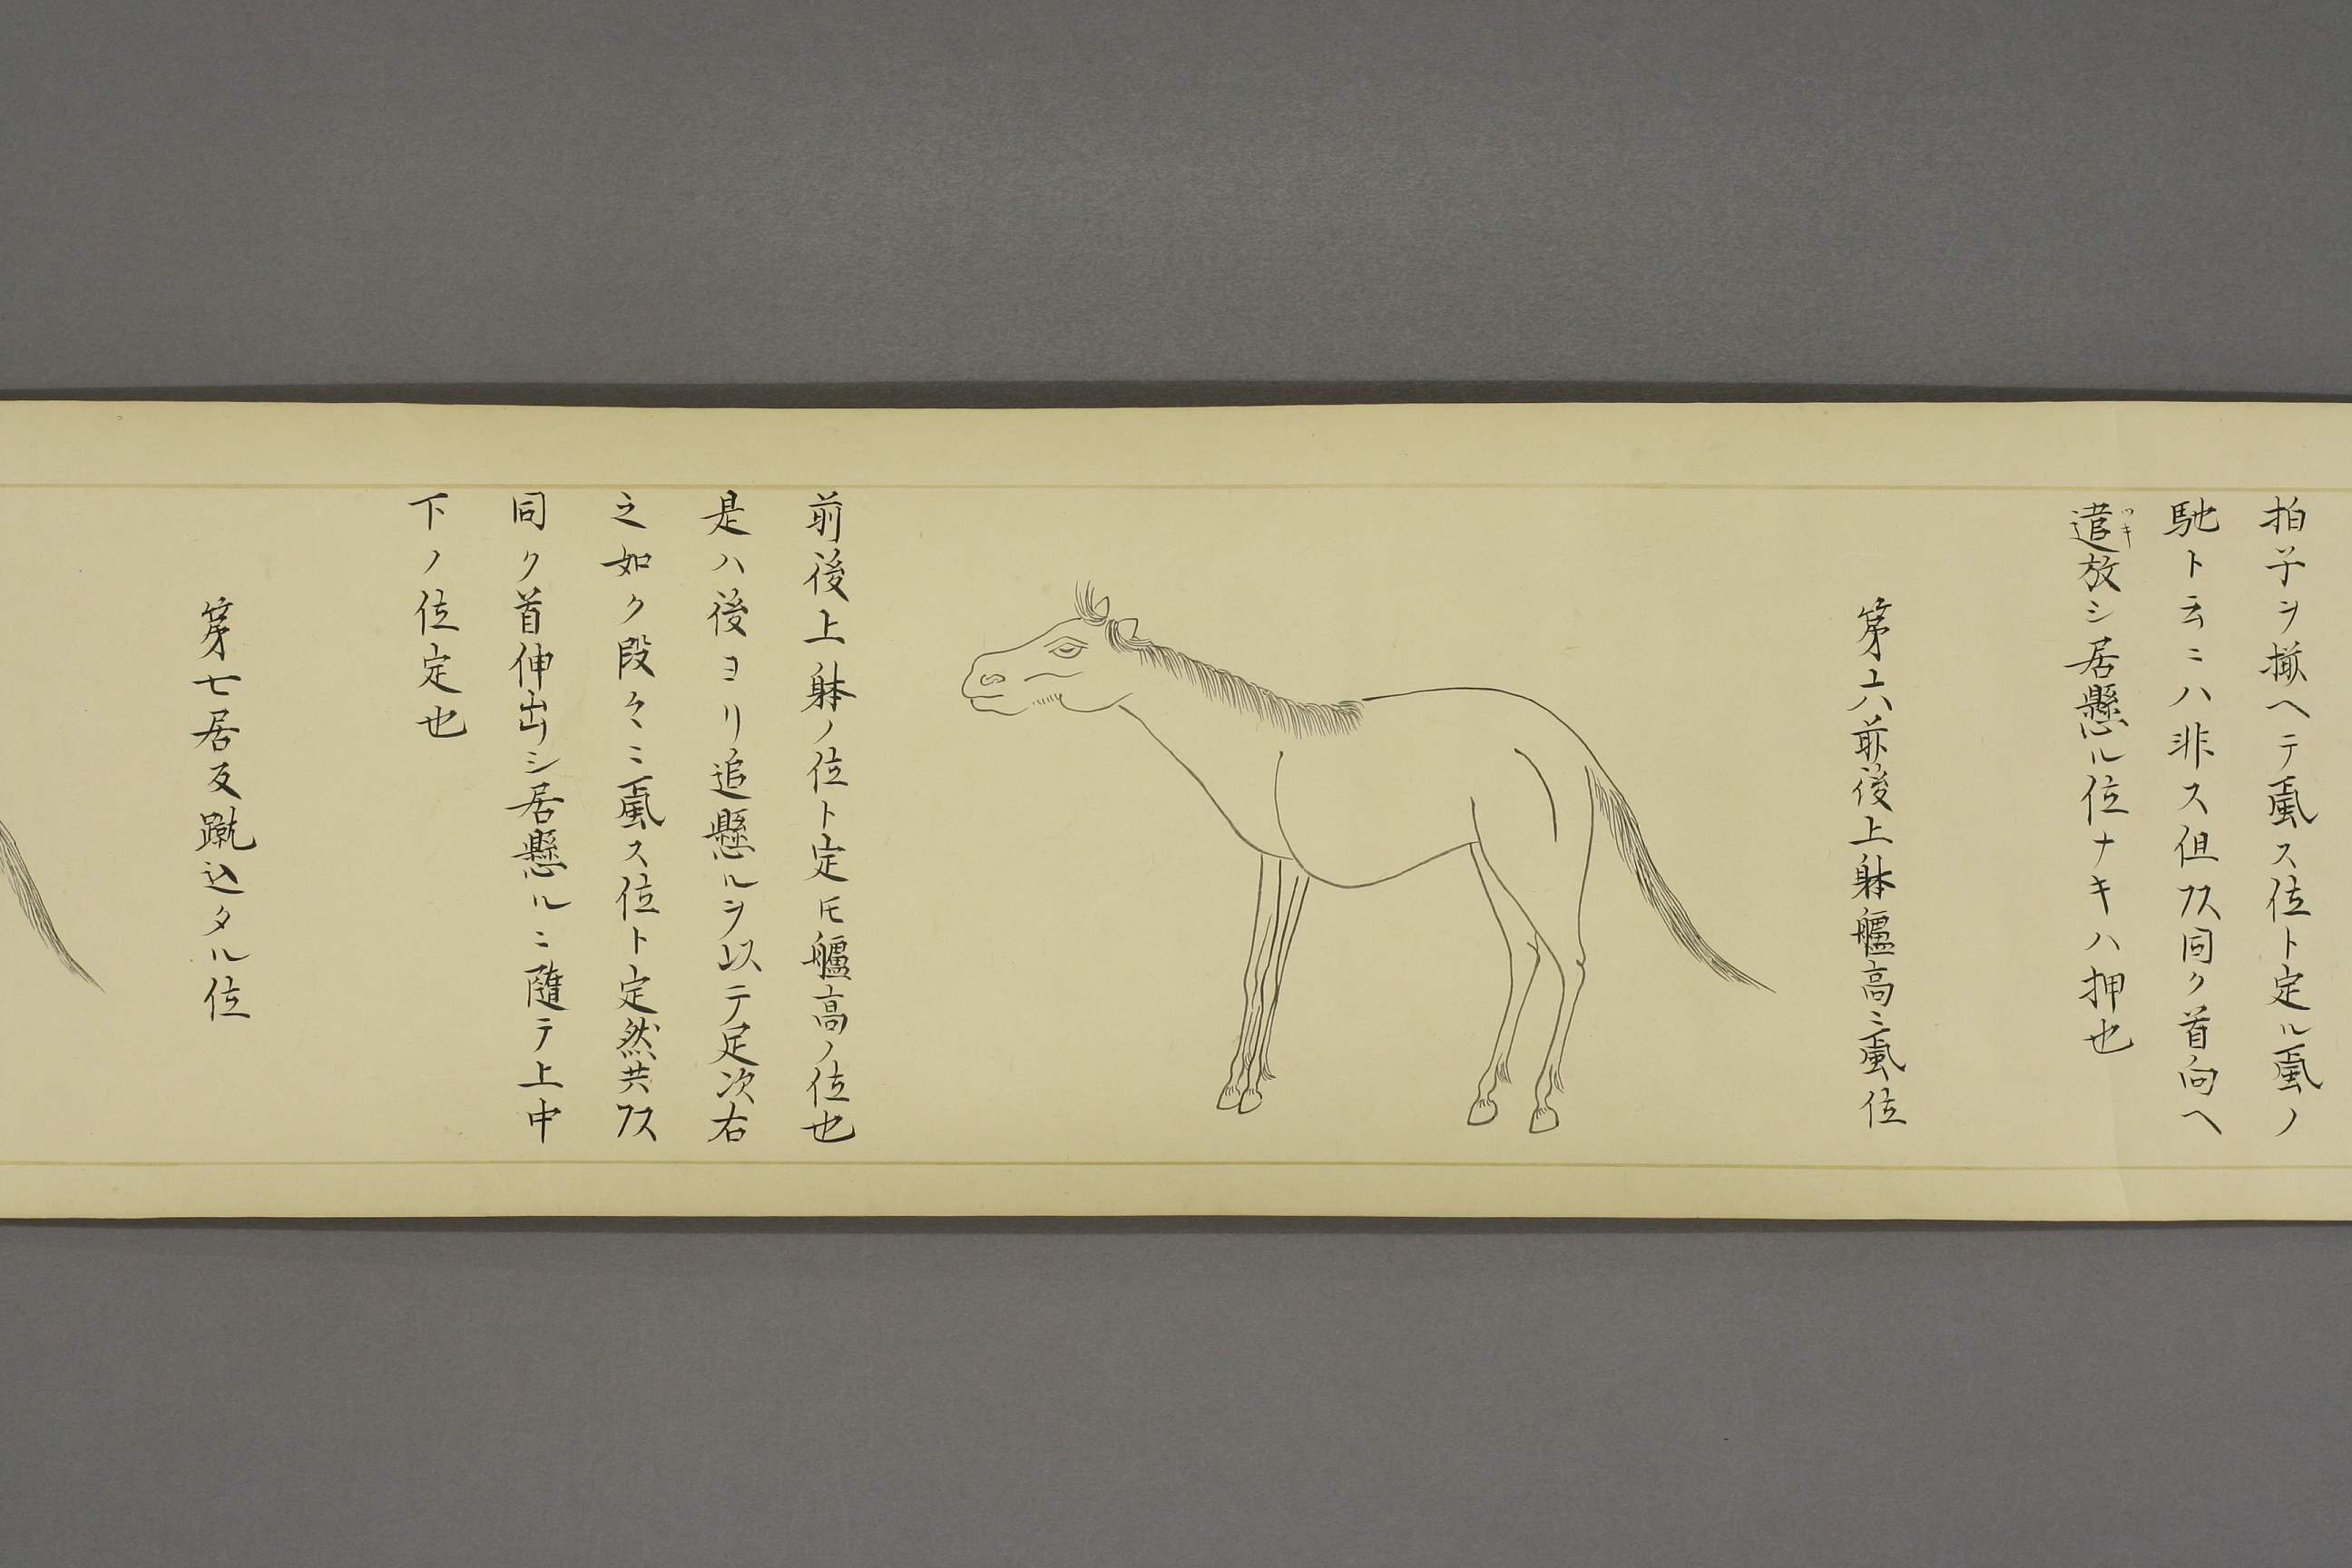 拍子ヲ揻ヘテ颪ス位ト定ル颪ノ
馳ト云ニハ非ス但フス同ク首向ヘ
遣放シ居懸ル位ナキハ押也
ツキ
第六前後上躰艫高ニ颪位
前後上躰ノ位ト定トモ艫高ノ位也
是ハ後ヨリ追懸ルヲ以テ足次右
之如ク段々ニ颪ス位ト定然共フス
同ク首伸出シ居懸ルニ隨テ上中
下ノ位定也
第七居反蹴込タル位